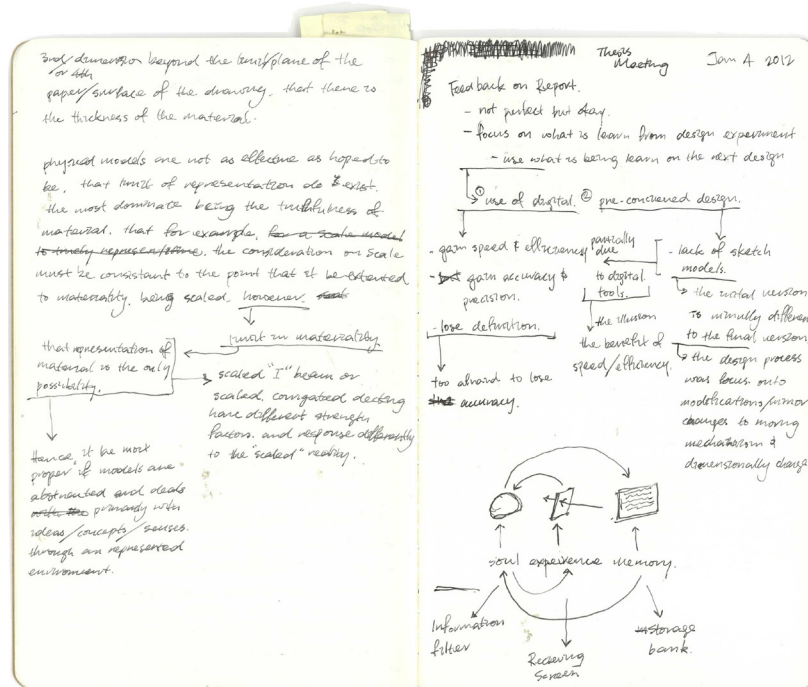 3rd/dimension beyond the limit/plane of the
or 4th
paper/surface of the drawing. that there is
the thickness of the material.
physical models are not as effective as hoped to
be. that limit of representation do exist.
the most dominate being the truthfulness of
material. that for example, for a scale model
to timely represent time. the consideration on scale
must be consistant to the point that it be extented
to materiality. being scaled. however.
limit in materiality.
that representation of
material is the only
possibility.
scaled "I" beam or
scaled, corrigated decking
have different strength
factors. and response differently
to the "scaled" reality.
Hence, it be most
proper if models are
abstracted and deals
primarily with
ideas/concepts/senses.
through an represented
environment.
Thesis
Meeting
Jan 4 2012
Feedback on Report.
- not perfect but okay.
- focus on what is learn from design experiment
- use what is being learn on the next design
① use of digital. ② pre-concieved design.
- gain speed & efficiency
- gain accuracy &
precision.
- lose definition.
too afraid to lose
accuracy.
partially
due
to digital
tools.
the illusion
the benefit of
speed/efficiency.
- lack of sketch
models.
the initial version
is minully different
to the final version
the design process
was focus onto
modifications/minor
changes to moving
mechanism &
dimensionally change
soul experience memory.
Information
filter
Recieving
Screen
storage
bank.